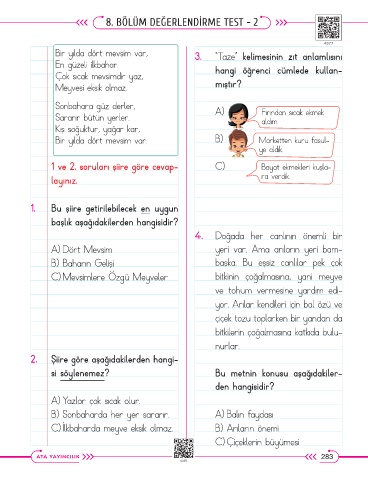 8. BÖLÜM DEĞERLENDİRME TEST - 2
Bir yılda dört mevsim var,
En güzeli ilkbahar.
Çok sıcak mevsimdir yaz,
Meyvesi eksik olmaz.
Sonbahara güz derler,
Sararır bütün yerler.
Kış soğuktur, yağar kar,
Bir yılda dört mevsim var.
1 ve 2. soruları şiire göre cevap-
layınız.
1. Bu şiire getirilebilecek en uygun
başlık aşağıdakilerden hangisidir?
A) Dört Mevsim
B) Baharın Gelişi
C) Mevsimlere Özgü Meyveler
2. Şiire göre aşağıdakilerden hangi-
si söylenemez?
A) Yazlar çok sıcak olur.
B) Sonbaharda her yer sararır.
C) İlkbaharda meyve eksik olmaz.
3. "Taze" kelimesinin zıt anlamlısını
hangi öğrenci cümlede kullan-
mıştır?
A) Fırından sıcak ekmek
aldım.
B) Marketten kuru fasul-
ye aldık.
C) Bayat ekmekleri kuşla-
ra verdik.
4. Doğada her canlının önemli bir
yeri var. Ama arıların yeri bam-
başka. Bu eşsiz canlılar pek çok
bitkinin çoğalmasına, yani meyve
ve tohum vermesine yardım edi-
yor. Arılar kendileri için bal özü ve
çiçek tozu toplarken bir yandan da
bitkilerin çoğalmasına katkıda bulu-
nurlar.
Bu metnin konusu aşağıdakiler-
den hangisidir?
A) Balın faydası
B) Arıların önemi
C) Çiçeklerin büyümesi
ATA YAYINCILIK
283